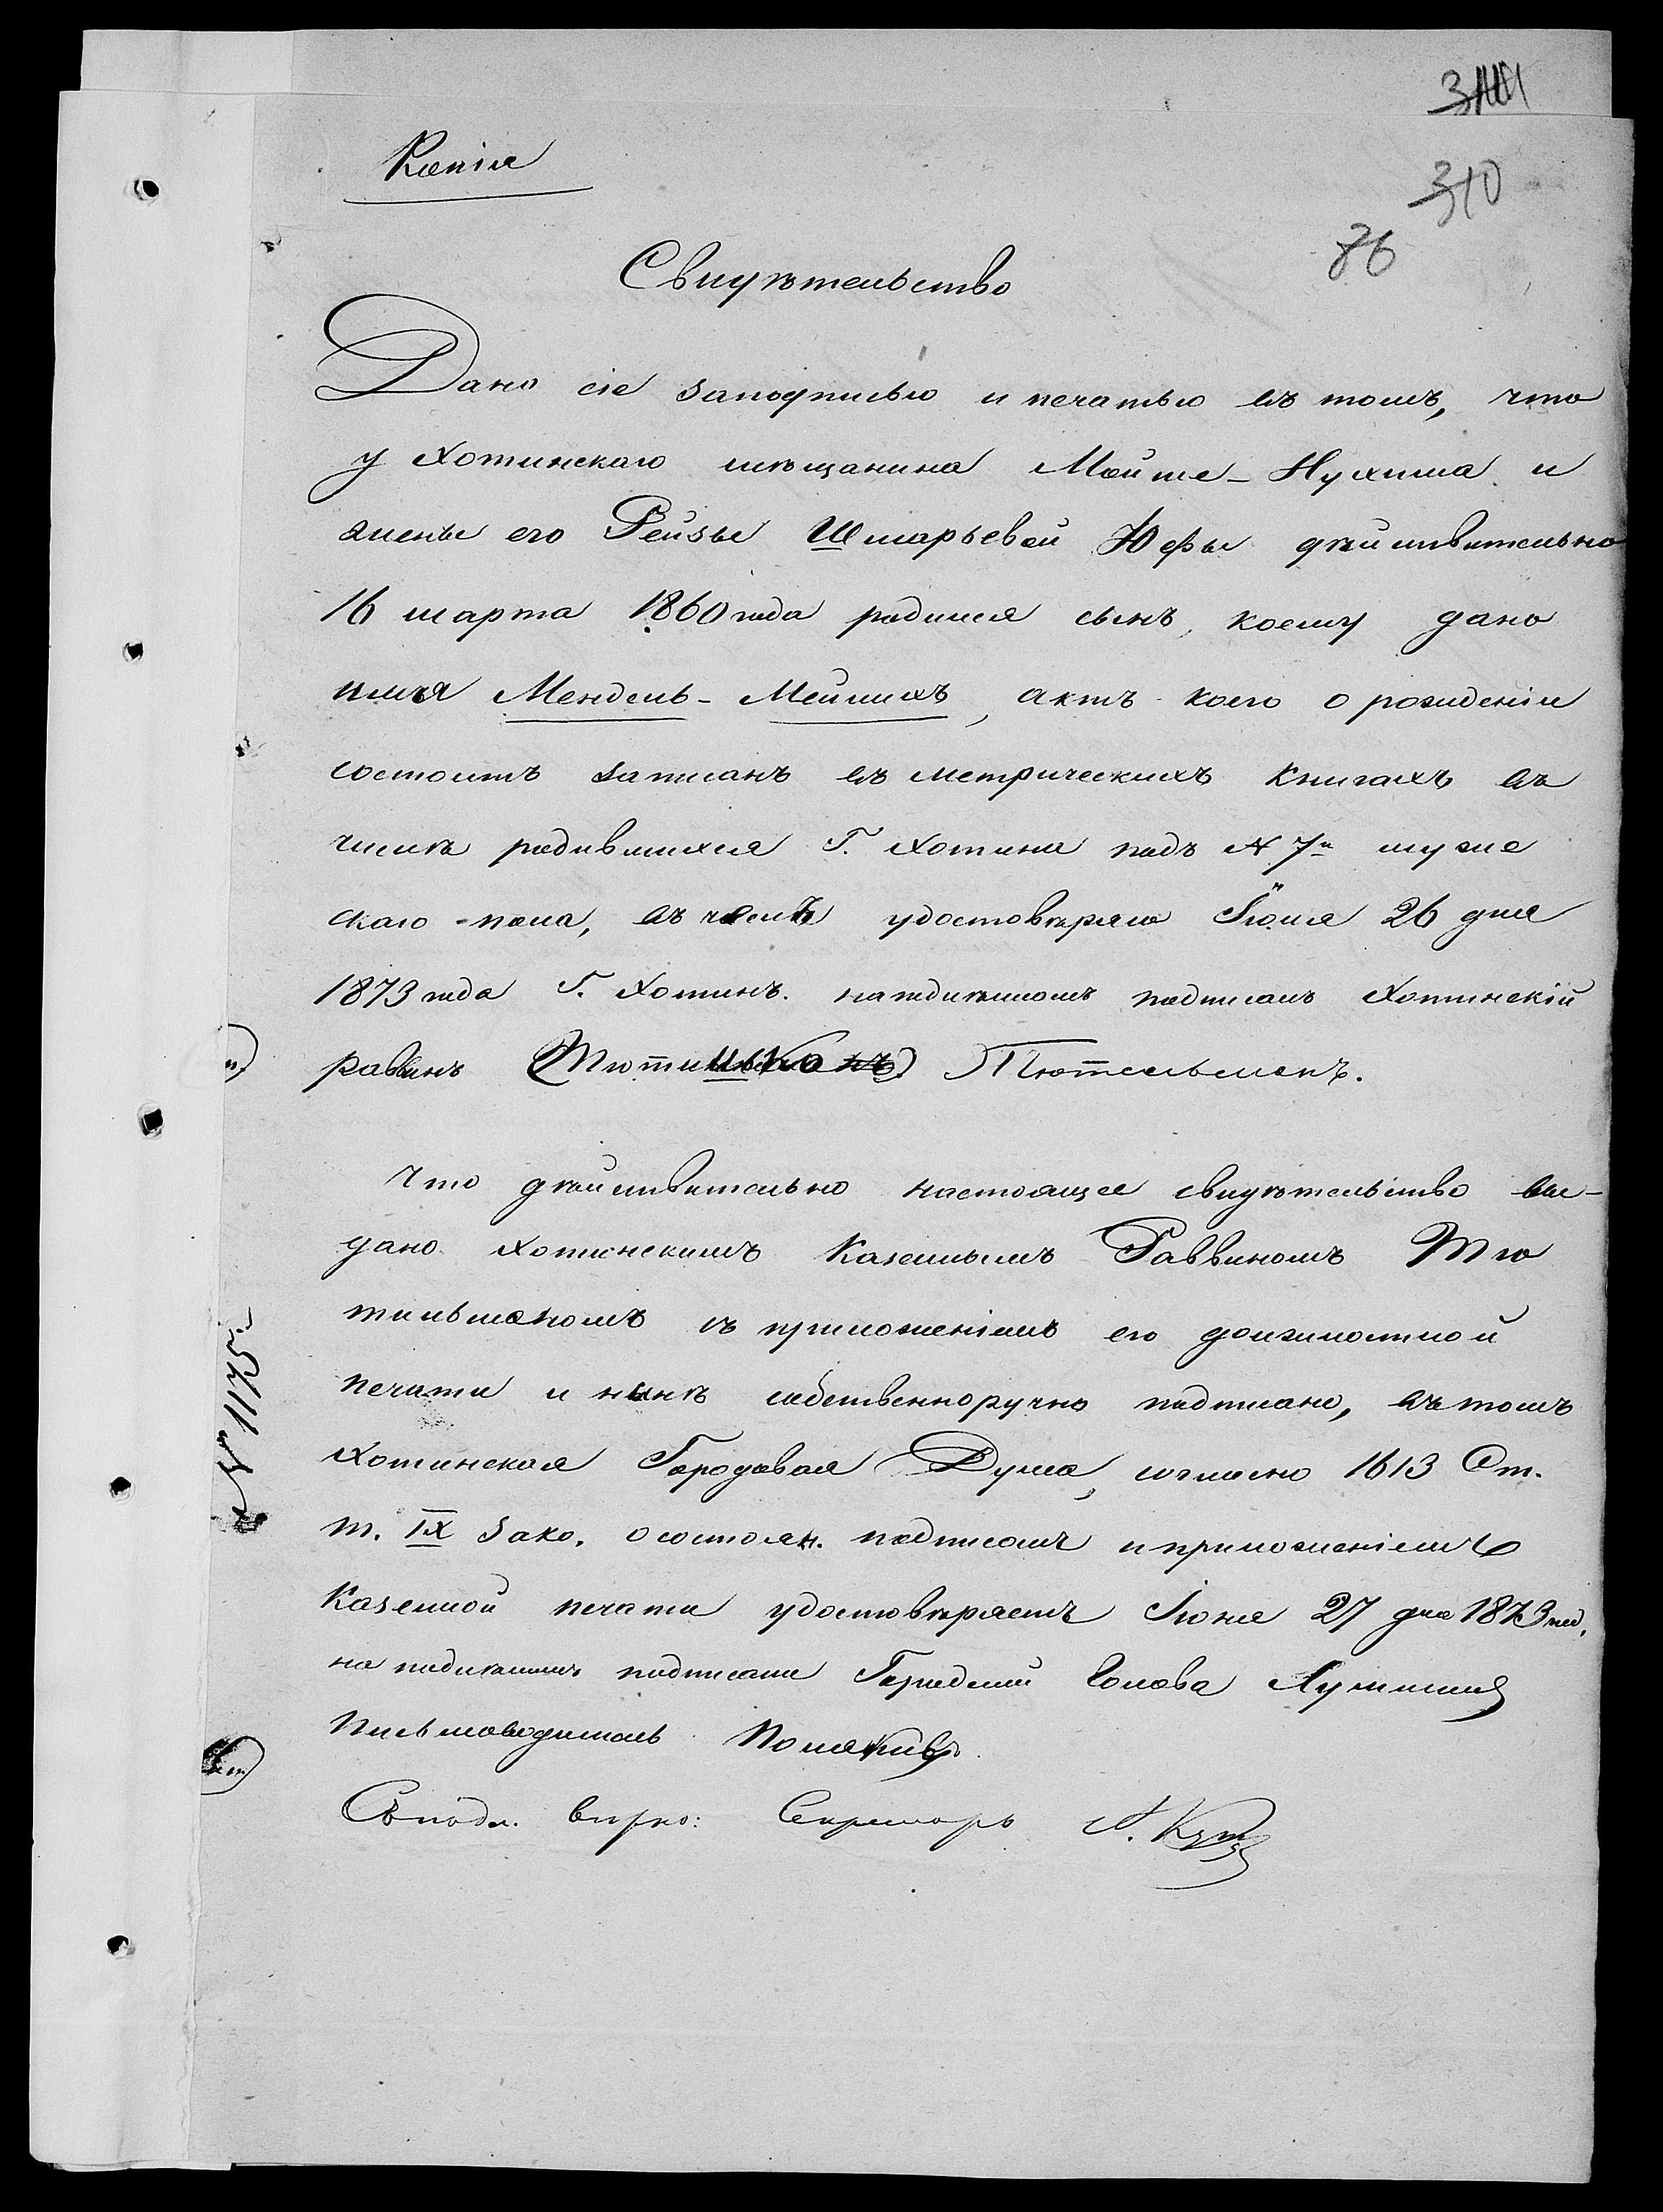 310
76
Копія
Свидѣтельство
Дано сіе за подписью и печатью въ томъ, что
у Хотинскаго мѣщанина Мойше-Нухима и
жены его Рейзы Шмарьевой Юфы дѣйствительно
16 марта 1860 года родился сынъ, коему дано
имя Мендель-Мейлихъ, актъ коего о рожденіи
состоитъ записанъ въ метрическихъ книгахъ въ
числѣ родившихся Г. Хотина подъ № 7м муже
скаго пола, въ чемъ удостовѣряю Іюня 26 дня
1873 года Г. Хотинъ. на подлинномъ подписалъ Хотинскій
раввинъ Тютельманъ.
Что дѣйствительно настоящее свидѣтельство вы-
дано Хотинскимъ Казеннымъ Раввиномъ Тю
тильманомъ съ приложеніемъ его должностной
печати и нимъ собственноручно подписано, въ томъ
Хотинская Городовая Дума, согласно 1613 Ст.
т. IX Зако. о состоян. подписомъ и приложеніемъ
Казенной печати удостовѣряетъ Іюня 27 дня 1873 год.
на подлинномъ подписали Городской Голова
Письмоводитель
Съ подл. вѣрно: Секретарь
№ 1175.